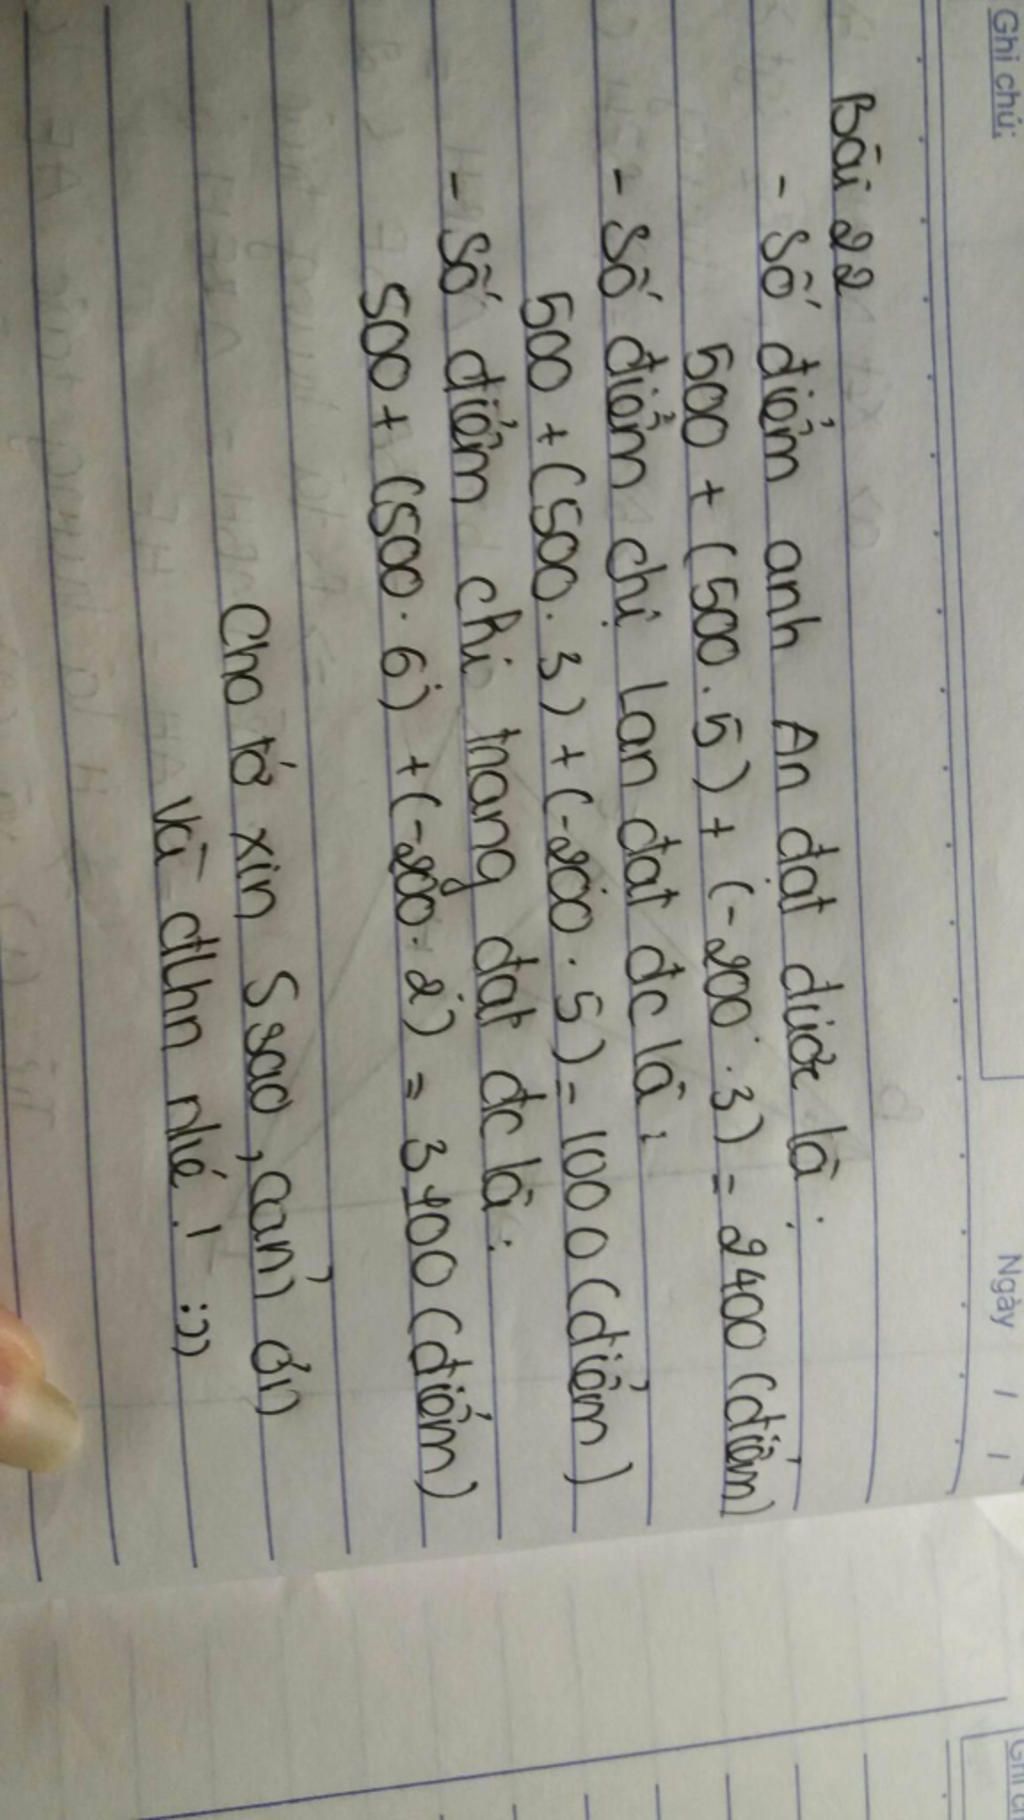 Ghi chú:
Ngày / /
Bài 22
- Số điểm anh An đạt được là:
500 + (500 . 5) + (-200 . 3) = 2400 (điểm)
- Số điểm chị Lan đạt đc là:
500 + (500 . 3) + (-200 . 5) = 1000 (điểm)
- Số điểm chị trang đạt đc là:
500 + (500 . 6) + (-200 . 2) = 3100 (điểm)
Cho tớ xin 5 sao, cảm ơn
và đlhn nhé! :))